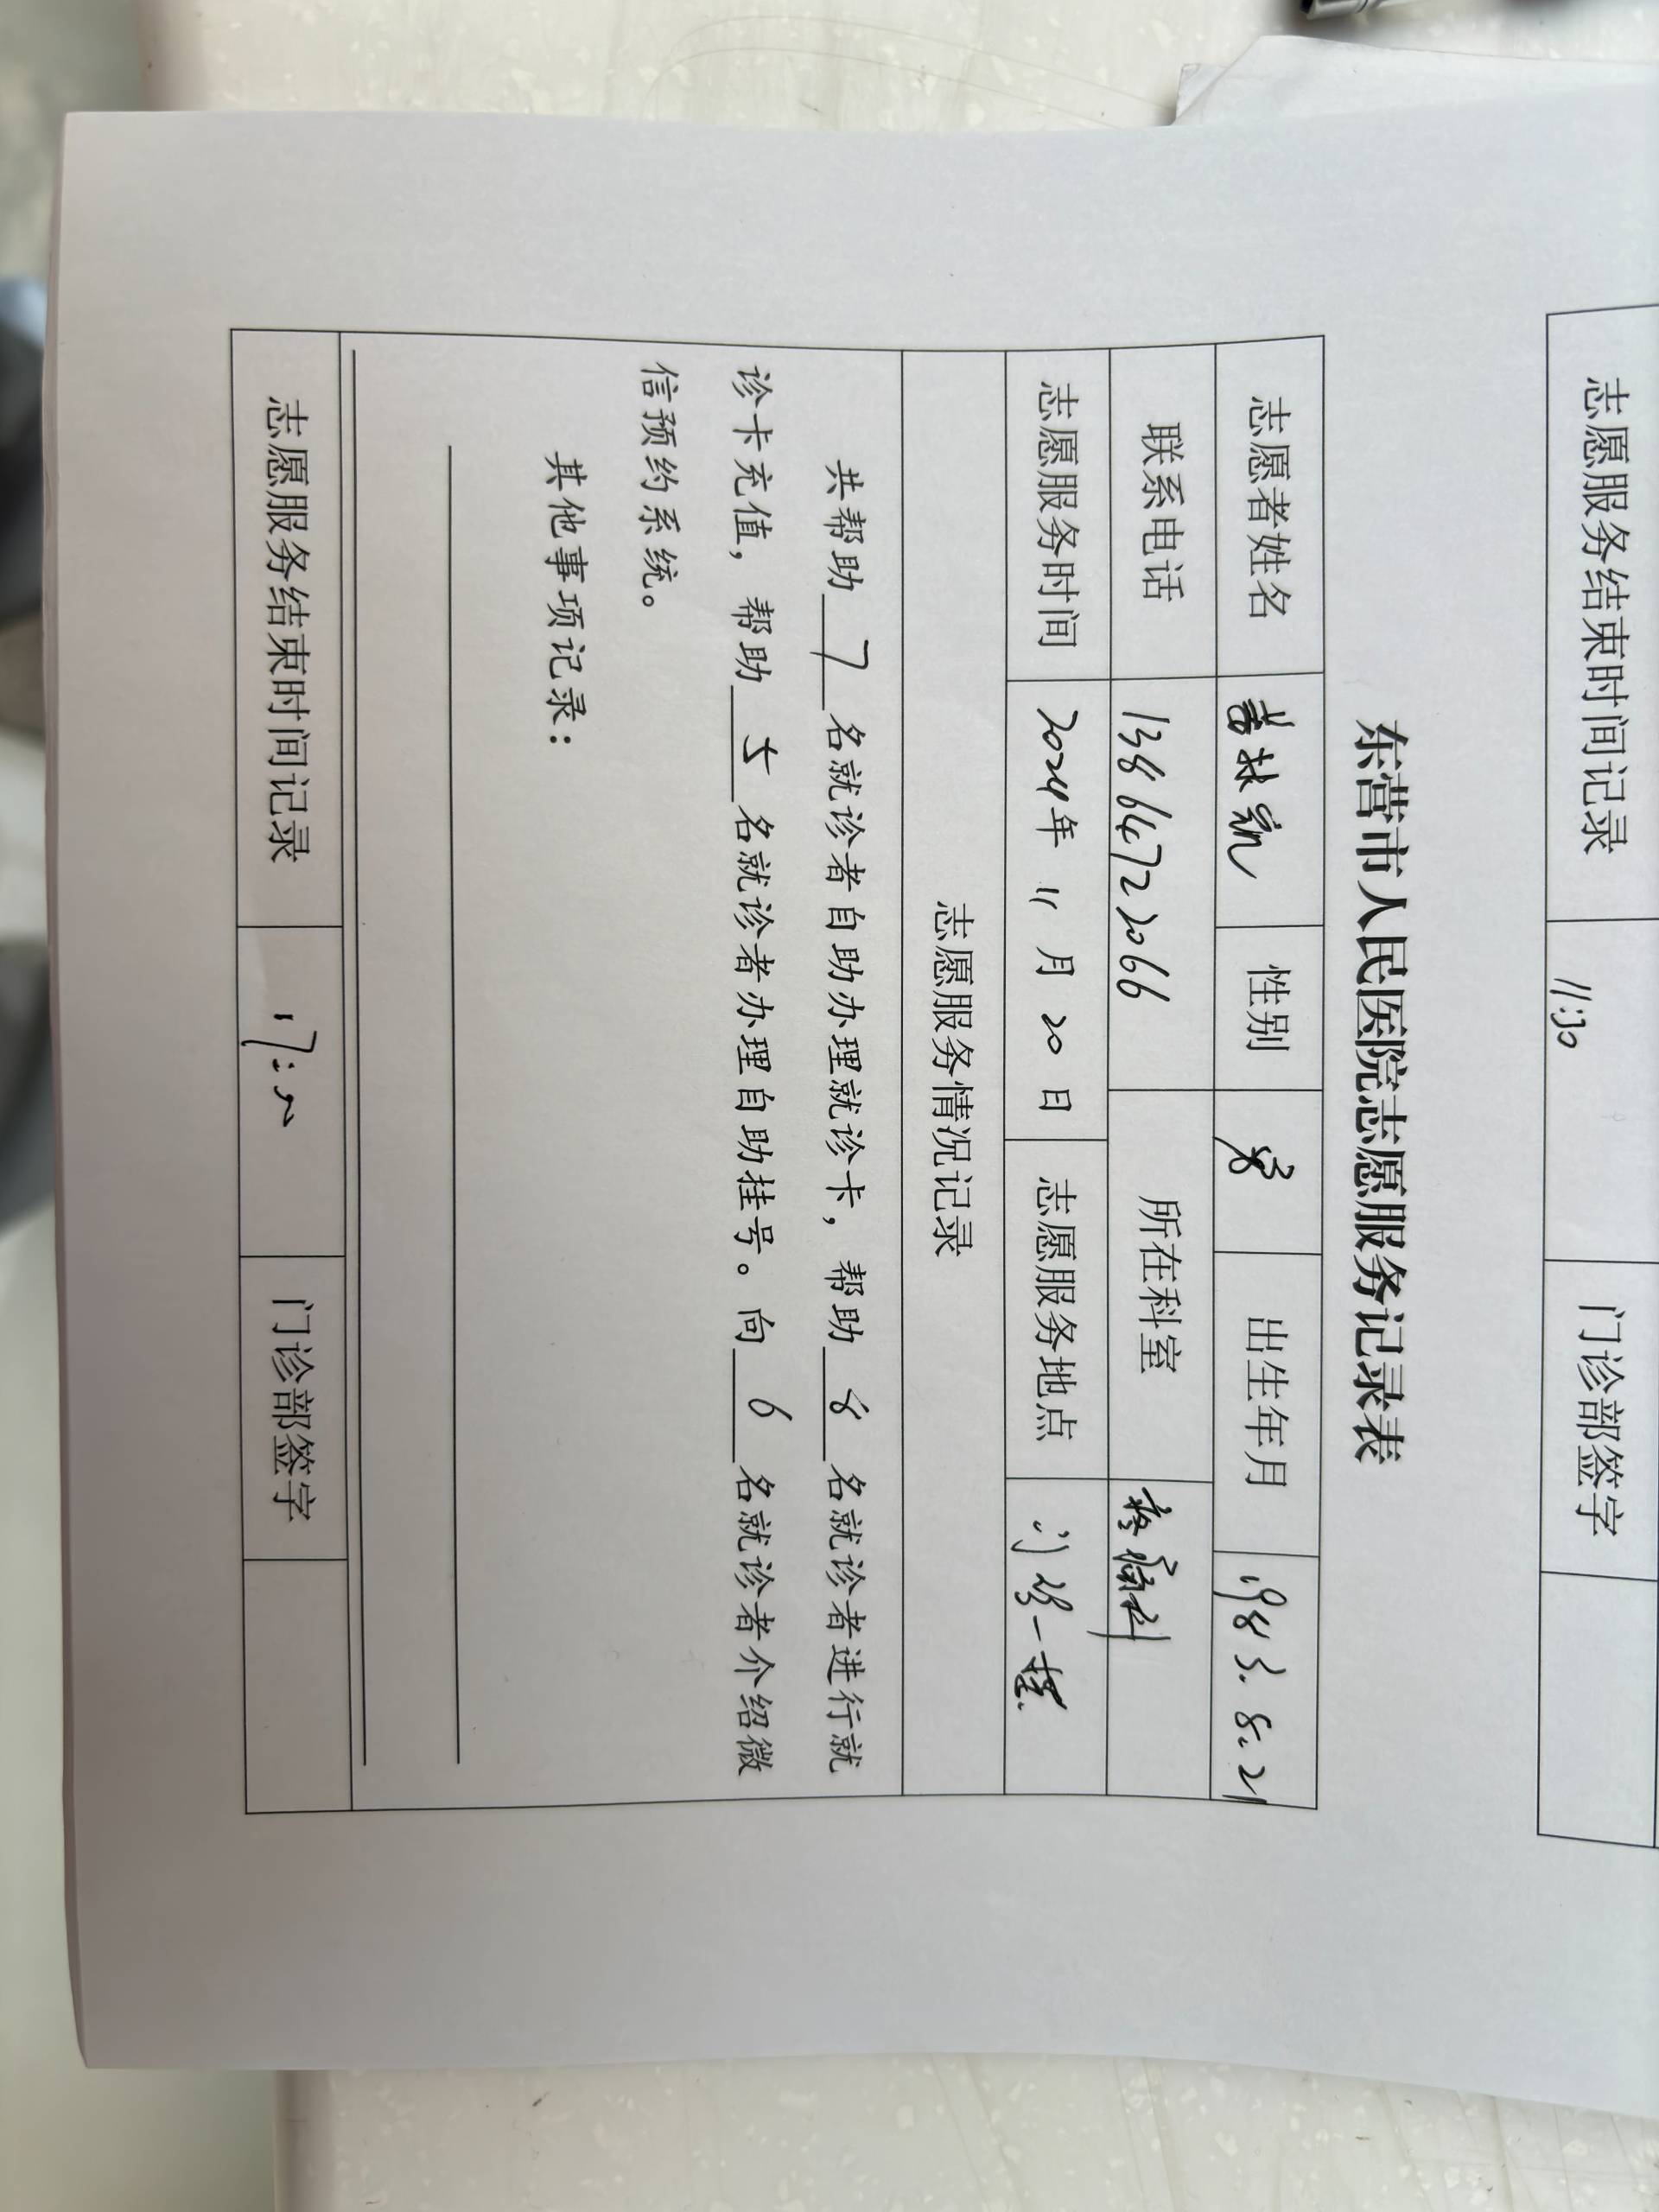 志愿服务结束时间记录 11:30 门诊部签字
东营市人民医院志愿服务记录表
志愿者姓名 性别 男 出生年月 1983.8.21
联系电话 13864722066 所在科室 疼痛科
志愿服务时间 2024年 11 月 20 日 志愿服务地点 门诊一楼
志愿服务情况记录
共帮助 7 名就诊者自助办理就诊卡，帮助 8 名就诊者进行就
诊卡充值，帮助 5 名就诊者办理自助挂号。向 6 名就诊者介绍微
信预约系统。
其他事项记录：
志愿服务结束时间记录 门诊部签字